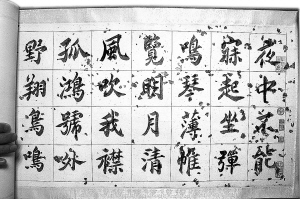 夜中不能
寐起坐彈
鳴琴薄帷
鑒明月清
風吹我襟
孤鴻號外
野翔鳥鳴